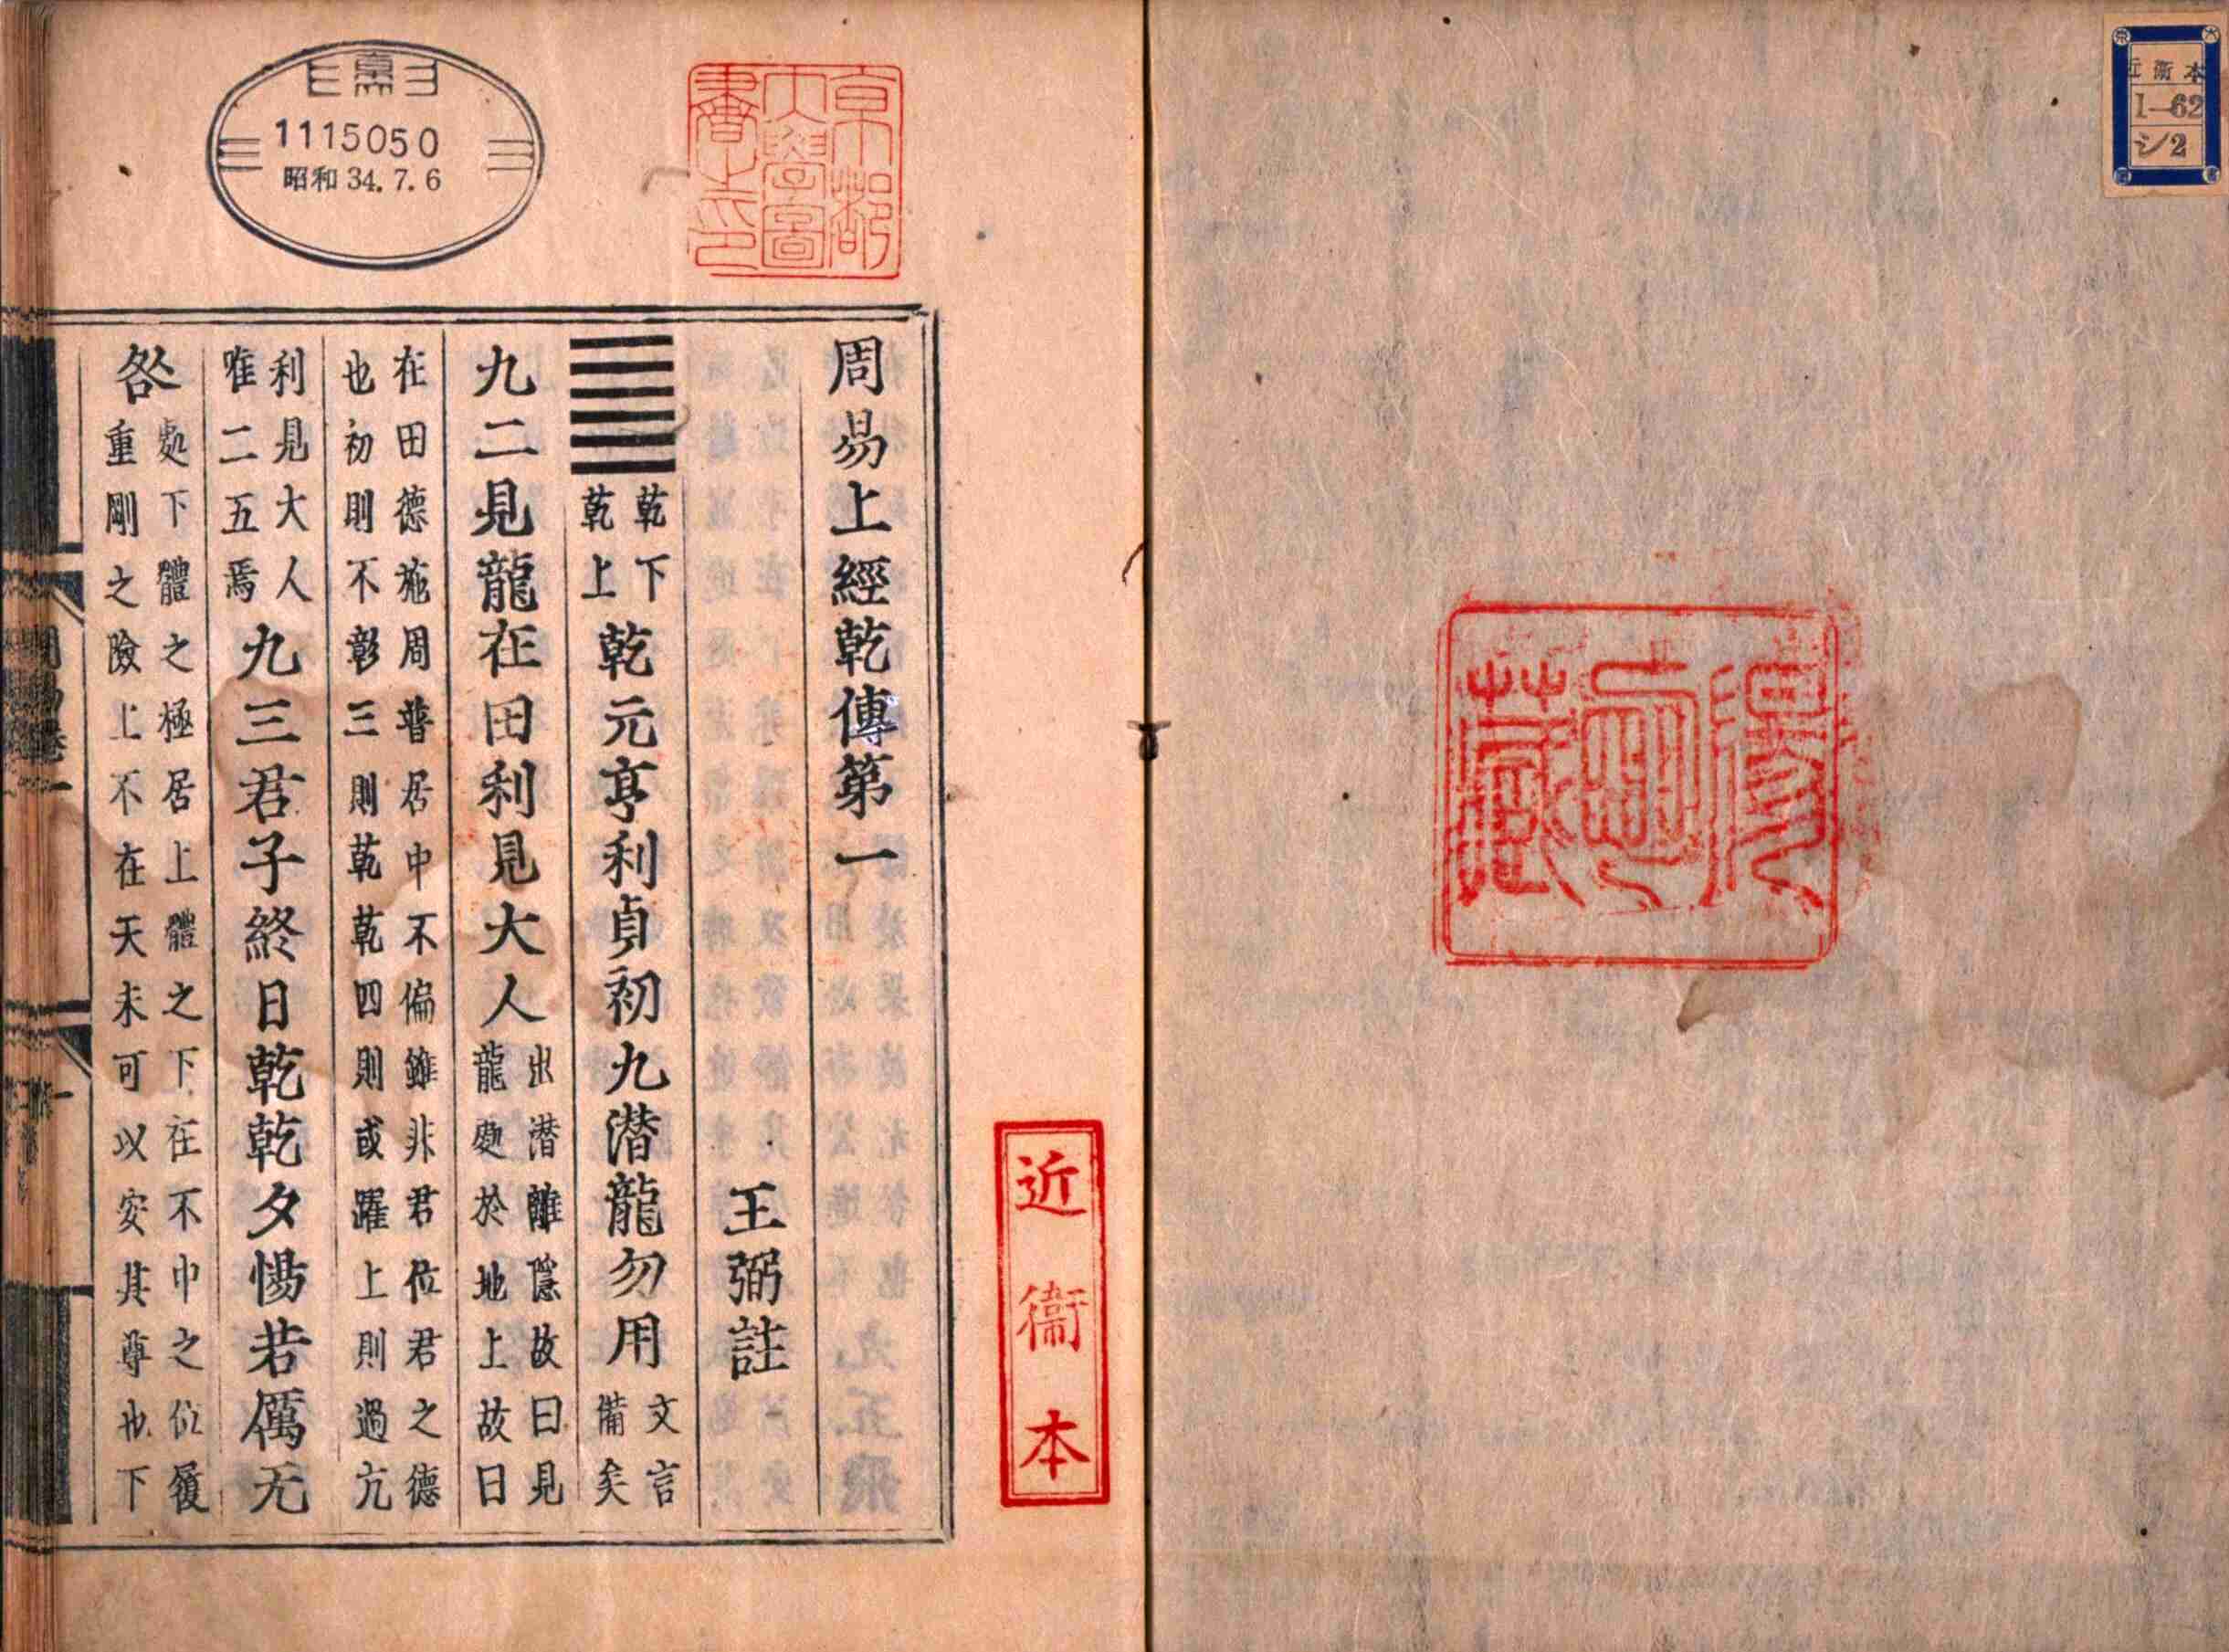 近衛本
1—62
シ2
近衞本
京都
大學圖
書之印
1115050
昭和 34.7.6
周易上經乾傳第一
王弼註
乾下乾上乾元亨利貞初九潜龍勿用文言備矣
九二見龍在田利見大人出潜離隱故曰見龍處於地上故曰
在田德施周普居中不偏雖非君位君之德也初則不彰三則乾乾四則或躍上則過亢
利見大人唯二五焉九三君子終日乾乾夕惕若厲无
咎處下體之極居上體之下在不中之位履重剛之險上不在天未可以安其尊也下